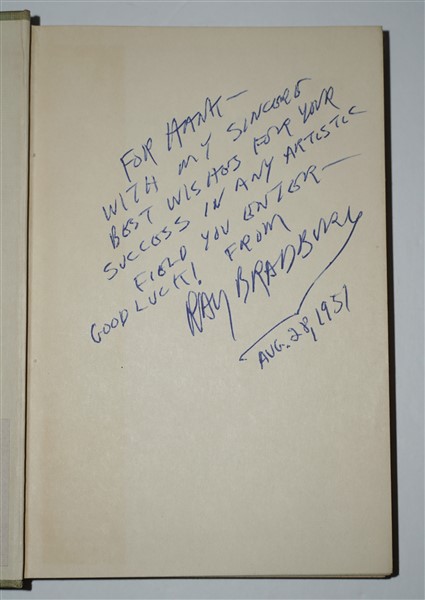 FOR HANK—
WITH MY SINCERE
BEST WISHES FOR YOUR
SUCCESS IN ANY ARTISTIC
FIELD YOU ENTER—
GOOD LUCK! FROM
RAY BRADBURY
AUG. 28, 1951